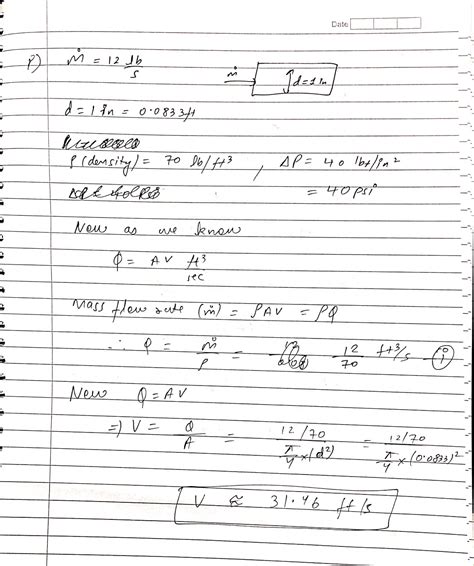 Date
P) ṁ = 12 lb/s
ṁ d = 1 in
d = 1 in = 0.0833 ft
ρ (density) = 70 lb/ft³ , ΔP = 40 lbf/in²
= 40 psi
Now as we know
Q = AV ft³/sec
Mass flow rate (ṁ) = ρAV = ρQ
∴ Q = ṁ/ρ = 12/70 ft³/s — (i)
Now Q = AV
⇒ V = Q/A = (12/70)/(π/4 × (d²)) = (12/70)/(π/4 × (0.0833)²)
V ≈ 31.46 ft/s